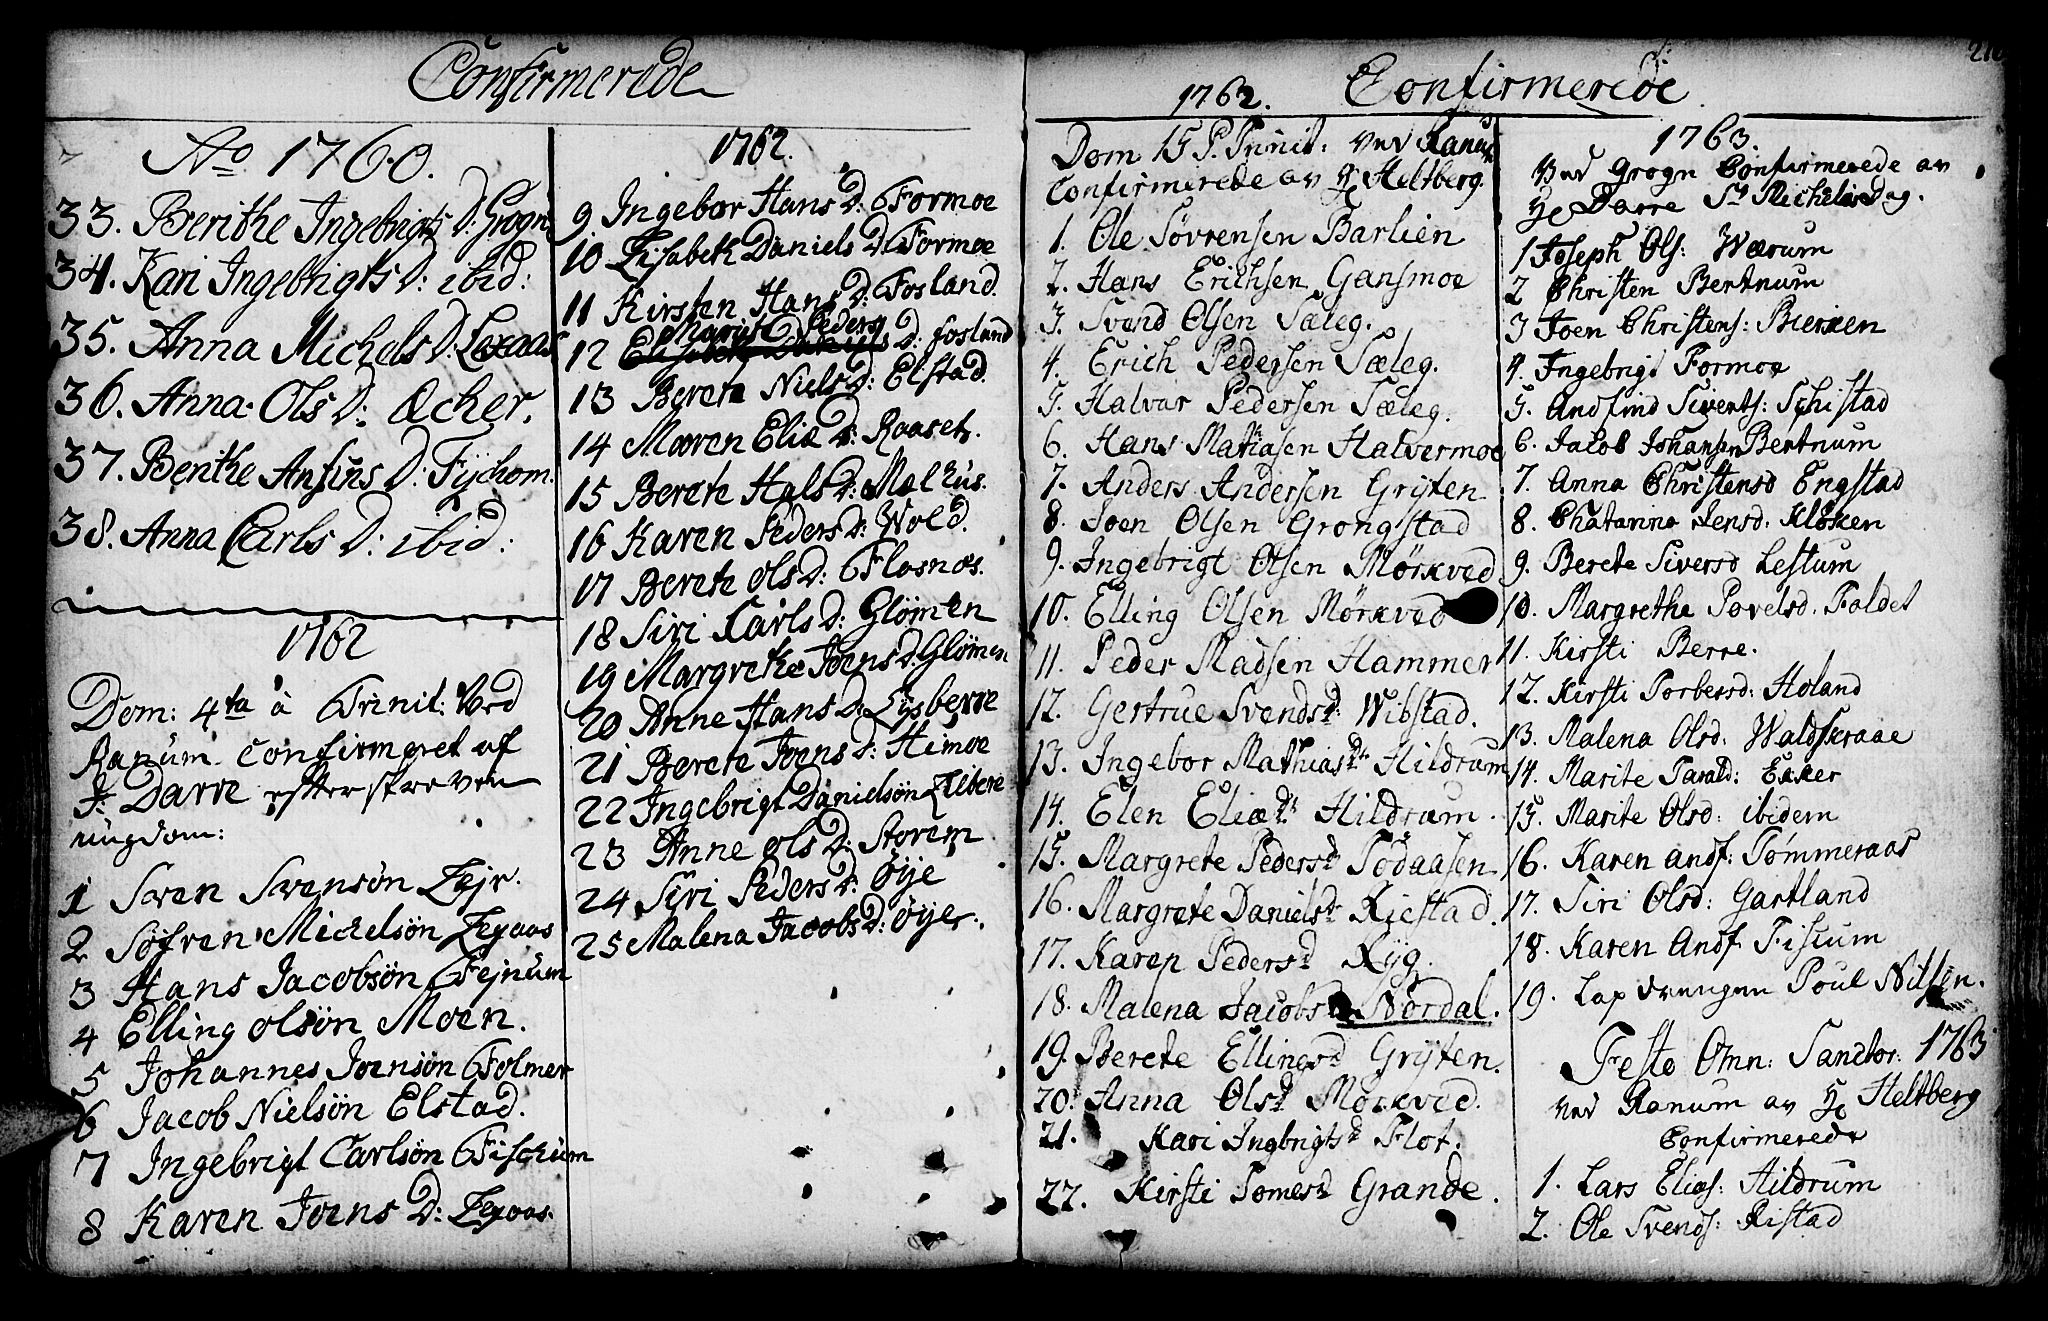 Confirmerede
Ao 1760.
33. Berithe Ingebrigts D: Grogn
34. Kari Ingebrigts D: ibid:
35. Anna Michels D: Lexaas
36. Anna Ols D: Æcher.
37. Benthe Ansfins D: Fischom.
38. Anna Carls D: ibid:
1762
Dom: 4ta à Trinit: Ved
Ranum. confirmeret af
J: Darre efterskreven
ungdom:
1 Sven Svensøn Lejr.
2 Søfren Michelsøn Legaas
3 Hans Jacobsøn Fejnum
4 Elling olsøn Moen.
5 Johannes Joensøn Folmer
6 Jacob Nielsøn Elstad.
7 Ingebrigt Carlsøn Fischum
8 Karen Joens D: Legaas.
1762.
9 Ingebor Hans D: Formoe
10 Lisabeth Daniels D: Formoe
11 Kirsten Hans D: Fosland.
Marit Peders
12 D: fosland
13 Berete Niels D: Elstad.
14 Maren Eliæ D: Raaset.
15 Berete Hals D: Melhus.
16 Karen Peders D: Wold.
17 Berete ols D: Flasnes.
18 Siri Karls D: Glømen
19 Margrethe Joens D: Glømen
20 Anne Hans D: Lysberre
21 Berete Joens D: Himoe
22 Ingebrigt Danielsøn
23 Anne ols D: Storem
24 Siri Peders D: Øÿe
25 Malena Jacobs D: Øÿer.
1762. Confirmerede
Dom 15 P. Trinit: ved Ranum
Confirmerede av Hr Heltberg.
1. Ole Sövrensen Barlien
2. Hans Erichsen Gansmoe
3. Svend Olsen Sæleg.
4. Erich Pedersen Sæleg.
5. Halvar Pedersen Sæleg.
6. Hans Mathiasen Halvermoe
7. Anders Andersen Grÿten
8. Joen Olsen Grongstad
9. Ingebrigt Olsen Mörkved
10. Elling Olsen Mörkved
11. Peder Madsen Hammer
12. Gertrue Svendsd: Wibstad.
13. Ingebor Mathiasdr Hildrum
14. Elen Eliædr Hildrum.
15. Margrete Pedersdr Södaasen
16. Margrete Danielsdr Riestad.
17. Karen Pedersd Rÿg.
18. Malena Jacobs Nordal.
19. Berete Ellingsd Grÿten.
20. Anna Olsd Mörkved.
21. Kari Ingbrigtsd Flot.
22. Kirsti Tomesd Grande.
1763.
Ved Grogn Confirmerede av
Hr Darre St Michelis Dag.
1 Joseph Ols: Wærum
2 Christen Bertnum
3 Joen Christens: Bierken
4. Ingebrigt Formoe
5. Andfind Siverts: Schistad
6. Jacob Johansen Bertnum
7. Anna Christensd Engstad
8. Chatarina Jensd: Klöken
9. Berete Siversd Lestum
10. Margrethe Povelsd. Foldet
11. Kirsti Berre.
12. Kirsti Torbersd: Holand
13. Malena Olsd: Waldskraae
14. Marite Tarald: Ekker
15. Marite Olsd: ibidem
16. Karen andf: Tömmeraas
17. Siri Olsd: Gartland
18. Karen Andf Fiscum
19. Lap drengen Poul Nilsen.
Festo Omn: Sanctor: 1763
ved Ranum av Hr Heltberg
Confirmerede
1. Lars Elias: Hildrum
2. Ole Svends: Ristad